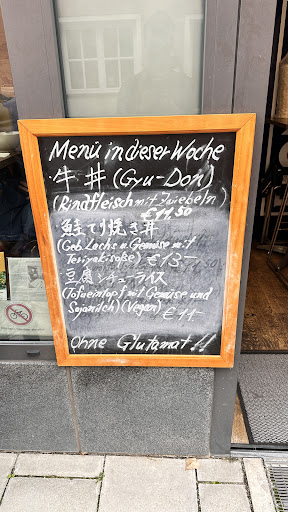 Menü in dieser Woche
・牛丼 (Gyu-Don)
(Rindfleisch mit Zwiebeln)
€11,50
・鮭てり焼き丼
(Geb. Lachs u. Gemüse mit
Teriyakisoße) €13,-
・豆腐シチューライス
(Tofueintopf mit Gemüse und
Sojamilch) (Vegan) €11,-
Ohne Glutamat!!